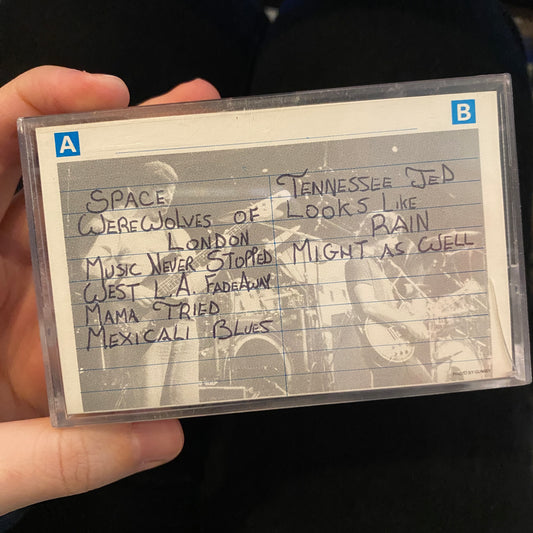 A
B
SPACE
WEREWOLVES OF
LONDON
MUSIC NEVER STOPPED
WEST L.A. FADEAWAY
MAMA TRIED
MEXICALI BLUES
TENNESSEE JED
LOOKS LIKE
RAIN
MIGHT AS WELL
PHOTO BY